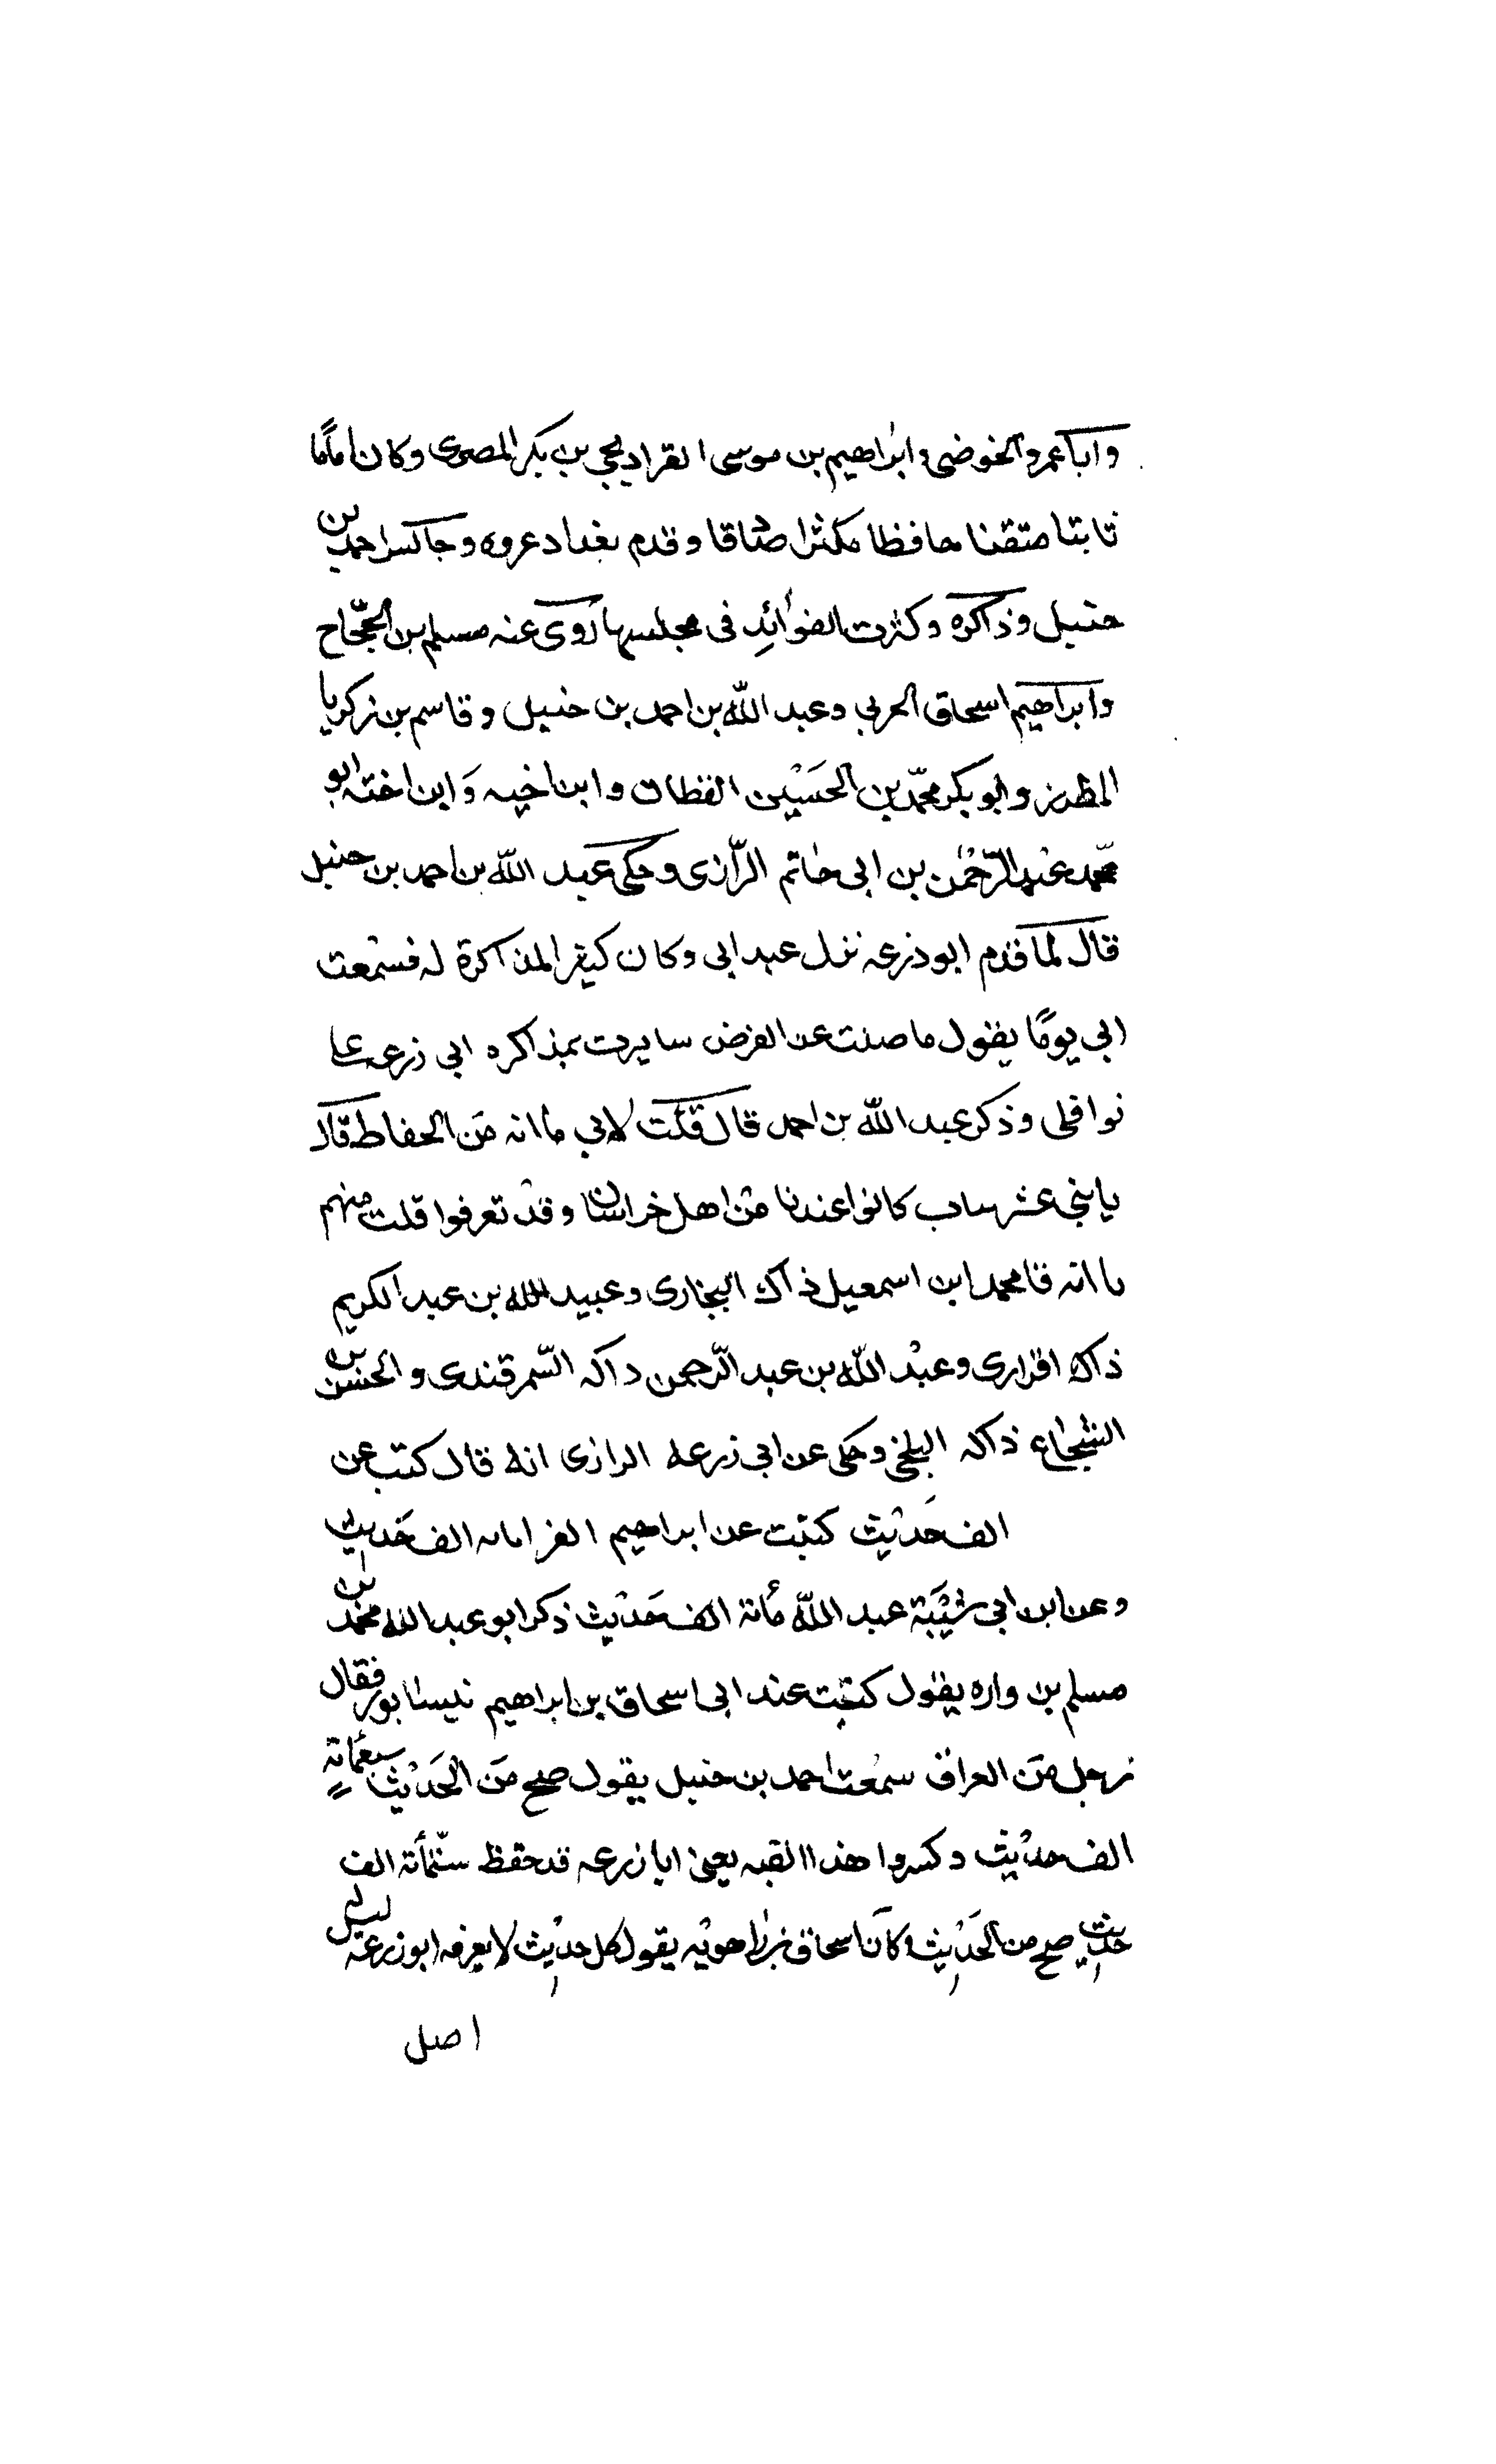 وابا عمرو الخوضى وابراهيم بن موسى القراد يحيى بن بكر المصرى وكان اماما
ثابتا متقنا حافظا مكثرا صادقا وقدم بغداد عروه وجالس احمد بن
حنبل وذاكره وكثرت الفوائد فى مجلسها روى عنه مسلم بن الحجّاج
وابراهيم اسحاق الحربي وعبد اللّه بن احمد بن حنبل وقاسم بن زكريا
المطرز وابو بكر محمّد بن الحسَيْن القطان وابن اخيه وَابن اخته ابو
محمّد عبد الرّحمٰن بن ابى حاتم الرّازى وحكى عبد اللّه بن احمد بن حنبل
قال لما قدم ابو ذرعه نزل عبد ابى وكان كثير المذاكرة له فسمعت
ابي يومًا يقول ما صلت عن الفرض سا يرت بمذاكره ابي زرعه على
نوافلى وذكر عبد اللّه بن احمد قال قلت لابي ماانه من الحفاط قال
يابنى عشر ساب كانوا عندنا من اهل خراسان وقد تعرفوا قلت منهم
ماانه قا محمد ابن اسمعيل ذاك البخارى وعبيد الله بن عبد الكريم
ذاك اقرارى وعبْد اللّه بن عبد الرّحمن داكه السّمرقندى والحسن بن
الشجاع ذاكه البلخى وحكى عن ابي زرعه الرازى انه قال كتب عن
الف حَديْث كتبت عن ابراهيم الفرا مانه الف حَديث
وعن ابن ابي شيْبَة عبد اللّه مأئة الف حَديْث ذكر ابو عبد الله محمّد بن
مسلم بن واره يقول كنت عند ابى اسحاق بن ابراهيم نيسابور فقال
زجل من العراق سمعت احمد بن حنبل يقول صح من الحَديْث سبعمائةٍ
الف حديْث وكسروا هذا القبه يعنى ابا زرعه قد حفظ ستّمأة الف
حديث صح من الحَديْث وكان اسحاق بن راهويْه يقول كل حديْث لا يعرفه ابو زرعة ليس له
اصل